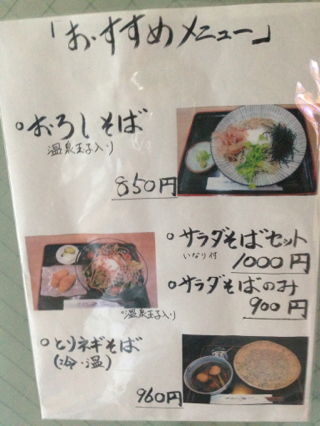 「おすすめメニュー」
○おろしそば
温泉玉子入り
850円
○サラダそばセット
いなり付
1000円
○サラダそばのみ
900円
温泉玉子入り
○とりネギそば
(冷・温)
960円